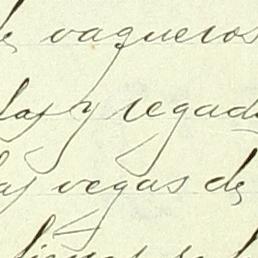 de vaqueros
las y regad
las vegas de